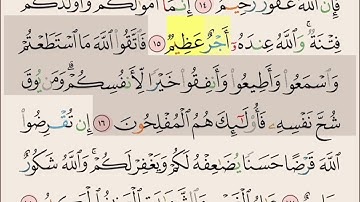 فَإِنَّ ٱللَّهَ غَفُورٌ رَّحِيمٌ ١٤ إِنَّمَآ أَمْوَٰلُكُمْ وَأَوْلَٰدُكُمْ
فِتْنَةٌ ۚ وَٱللَّهُ عِندَهُۥٓ أَجْرٌ عَظِيمٌ ١٥ فَٱتَّقُوا۟ ٱللَّهَ مَا ٱسْتَطَعْتُمْ
وَٱسْمَعُوا۟ وَأَطِيعُوا۟ وَأَنفِقُوا۟ خَيْرًا لِّأَنفُسِكُمْ ۗ وَمَن يُوقَ
شُحَّ نَفْسِهِۦ فَأُو۟لَٰٓئِكَ هُمُ ٱلْمُفْلِحُونَ ١٦ إِن تُقْرِضُوا۟
ٱللَّهَ قَرْضًا حَسَنًا يُضَٰعِفْهُ لَكُمْ وَيَغْفِرْ لَكُمْ ۚ وَٱللَّهُ شَكُورٌ